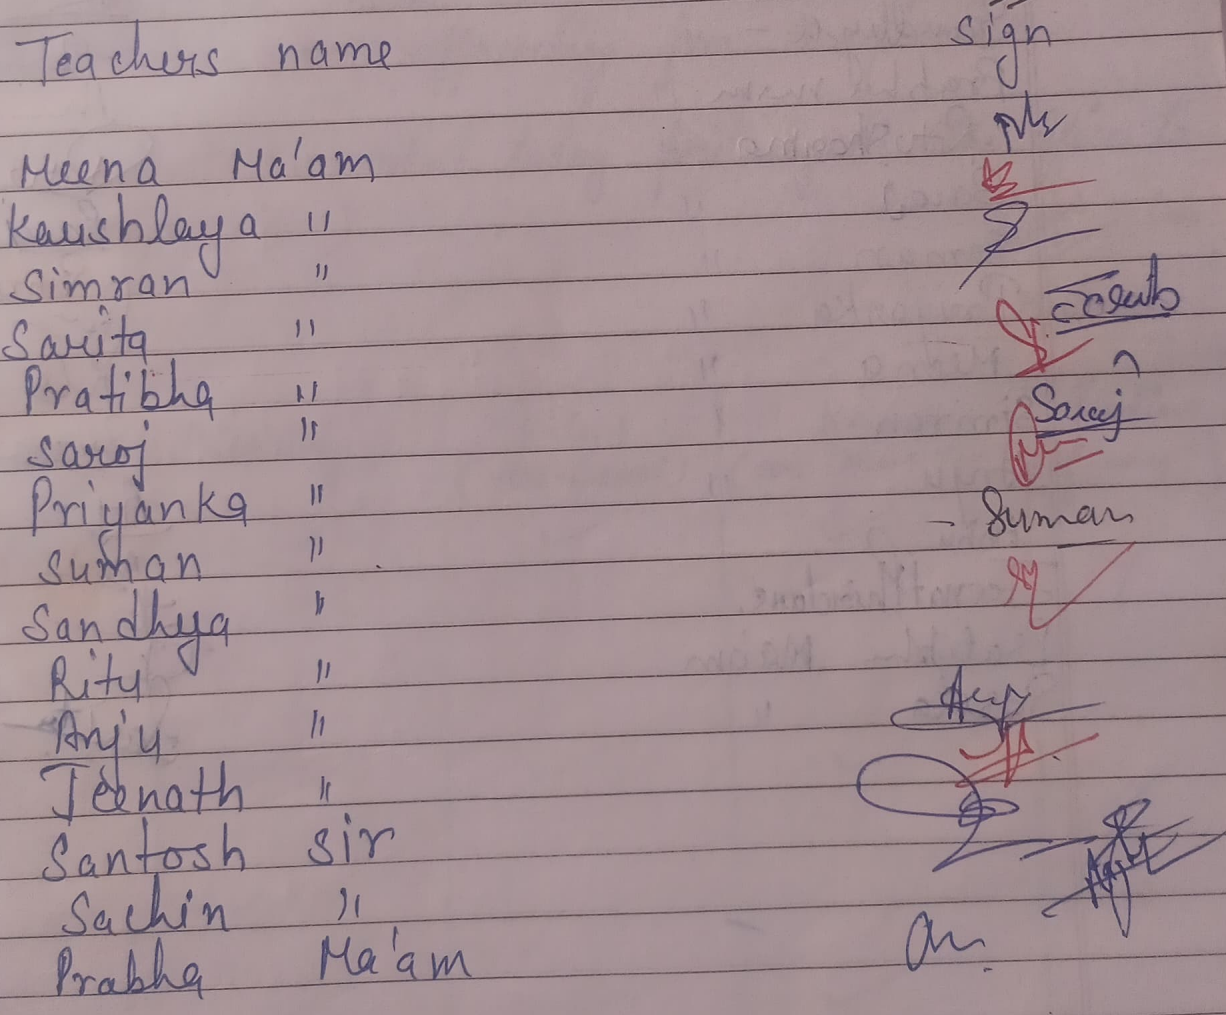 Teachers name sign
Meena Ma'am
Kaushlaya "
Simran "
Sarita "
Pratibha "
Saroj " Saroj
Priyanka "
Suman " - Suman
Sandhya "
Rity "
Anju "
Teenath "
Santosh Sir
Sachin "
Prabha Ma'am